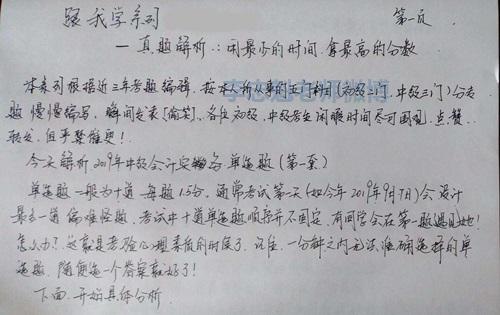 跟我学系列 第一页
— 真题解析:用最少的时间 拿最高的分数
本系列根据近三年考题编辑,按本人所从事的五门科目(初级二门、中级三门)分专
题慢慢编写,瞬间发表[偷笑],各位初级、中级考生闲暇时间尽可围观、点赞、
转发,但严禁催更!
今天解析2019年中级会计实务 单选题(第一套)
单选题一般为十道 每题1.5分,通常考试第一天(如今年2019年9月7日)会设计
最多一道偏难怪题,考试中十道单选题顺序并不固定,有同学会在第一题遇见她!
怎么办?这就是考验心理素质的时候了,记住,一分钟之内无法准确选择的单
选题,随便选一个答案就好了!
下面,开始具体分析.